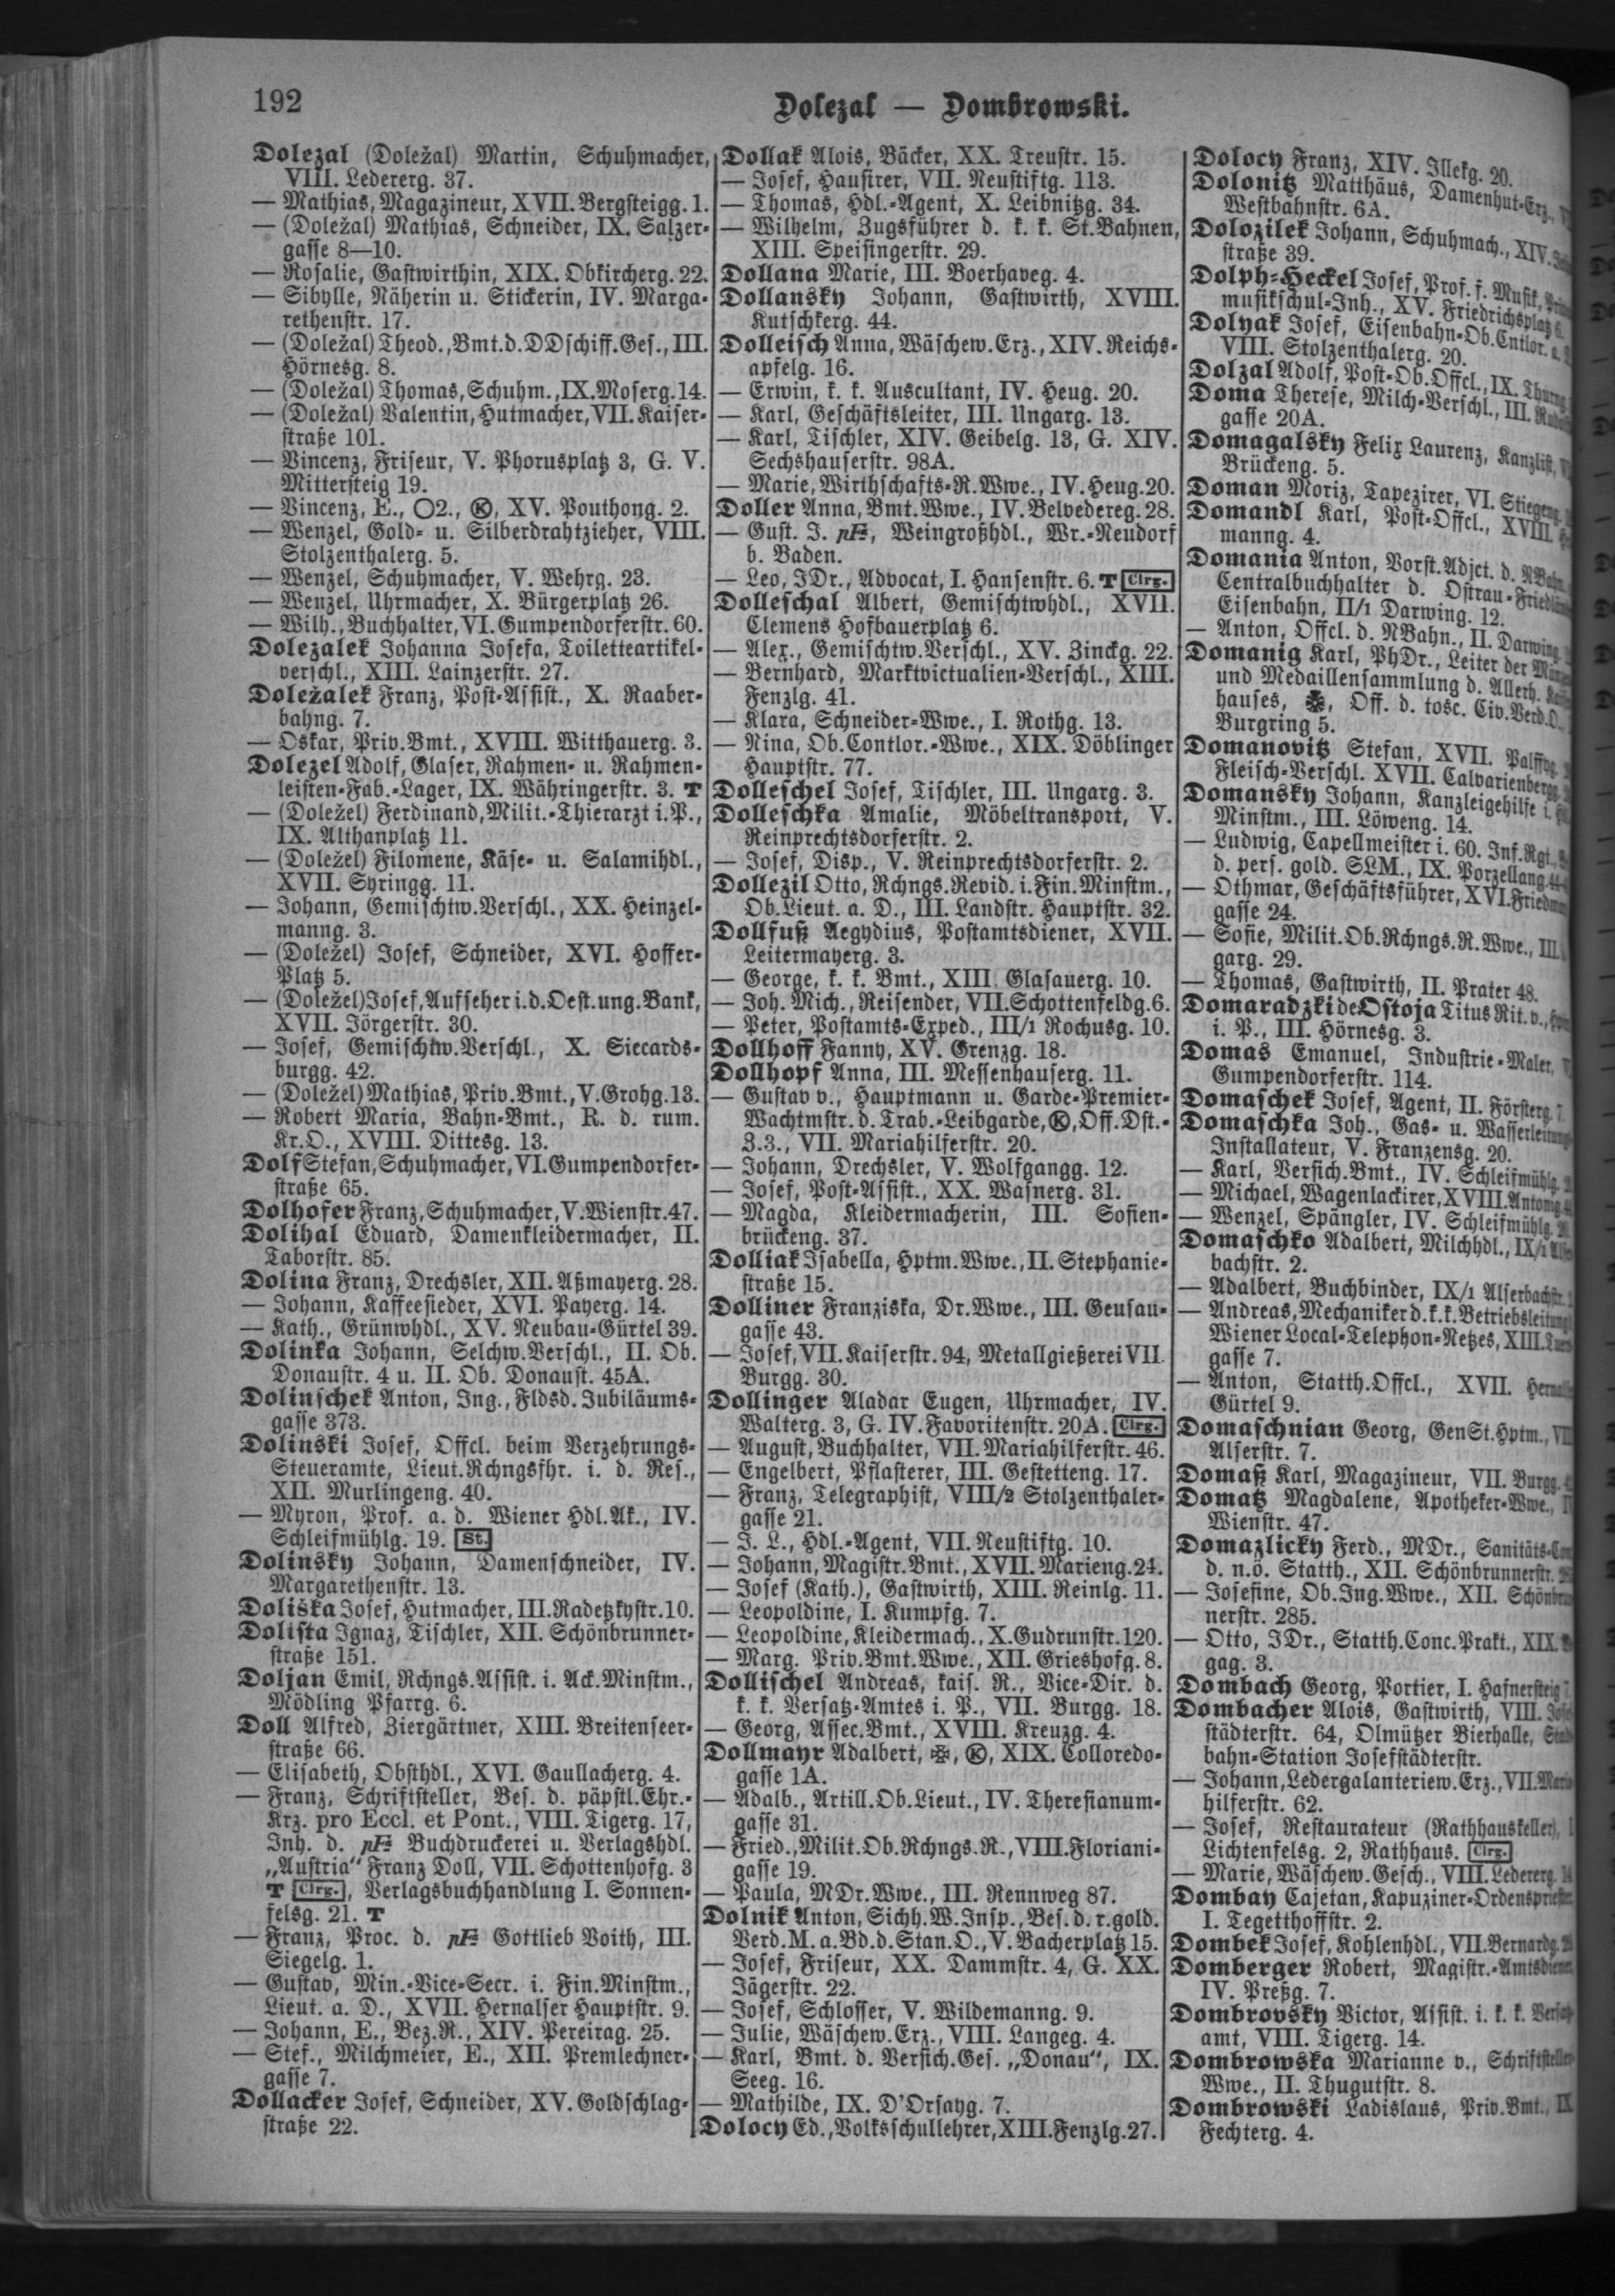 192
Dolezal — Dombrowski.
Dolezal (Doležal) Martin, Schuhmacher,
VIII. Ledererg. 37.
— Mathias, Magazineur, XVII. Bergsteigg. 1.
— (Doležal) Mathias, Schneider, IX. Salzer-
gasse 8—10.
— Rosalie, Gastwirthin, XIX. Obkircherg. 22.
— Sibylle, Näherin u. Stickerin, IV. Marga-
rethenstr. 17.
— (Doležal) Theod., Bmt. d. DDschiff. Ges., III.
Hörnesg. 8.
— (Doležal) Thomas, Schuhm., IX. Moserg. 14.
— (Doležal) Valentin, Hutmacher, VII. Kaiser-
straße 101.
— Vincenz, Friseur, V. Phorusplatz 3, G. V.
Mittersteig 19.
— Vincenz, E., ◯2., Ⓚ, XV. Pouthong. 2.
— Wenzel, Gold- u. Silberdrahtzieher, VIII.
Stolzenthalerg. 5.
— Wenzel, Schuhmacher, V. Wehrg. 23.
— Wenzel, Uhrmacher, X. Bürgerplatz 26.
— Wilh., Buchhalter, VI. Gumpendorferstr. 60.
Dolezalek Johanna Josefa, Toiletteartikel-
verschl., XIII. Lainzerstr. 27.
Doležalek Franz, Post-Assist., X. Raaber-
bahng. 7.
— Oskar, Priv. Bmt., XVIII. Witthauerg. 3.
Dolezel Adolf, Glaser, Rahmen- u. Rahmen-
leisten-Fab.-Lager, IX. Währingerstr. 3. T
— (Doležel) Ferdinand, Milit.-Thierarzt i. P.,
IX. Althanplatz 11.
— (Doležel) Filomene, Käse- u. Salamihdl.,
XVII. Syringg. 11.
— Johann, Gemischtw. Verschl., XX. Heinzel-
manng. 3.
— (Doležel) Josef, Schneider, XVI. Hoffer-
Platz 5.
— (Doležel) Josef, Aufseher i. d. Oest. ung. Bank,
XVII. Jörgerstr. 30.
— Josef, Gemischtw. Verschl., X. Siccards-
burgg. 42.
— (Doležel) Mathias, Priv. Bmt., V. Grohg. 13.
— Robert Maria, Bahn-Bmt., R. d. rum.
Kr. O., XVIII. Dittesg. 13.
Dolf Stefan, Schuhmacher, VI. Gumpendorfer-
straße 65.
Dolhofer Franz, Schuhmacher, V. Wienstr. 47.
Dolihal Eduard, Damenkleidermacher, II.
Taborstr. 85.
Dolina Franz, Drechsler, XII. Aßmayerg. 28.
— Johann, Kaffeesieder, XVI. Payerg. 14.
— Kath., Grünwhdl., XV. Neubau-Gürtel 39.
Dolinka Johann, Selchw. Verschl., II. Ob.
Donaustr. 4 u. II. Ob. Donaust. 45A.
Dolinschek Anton, Ing., Fldsd. Jubiläums-
gasse 373.
Dolinski Josef, Offcl. beim Verzehrungs-
Steueramte, Lieut. Rchngsfhr. i. d. Res.,
XII. Murlingeng. 40.
— Myron, Prof. a. d. Wiener Hdl. Ak., IV.
Schleifmühlg. 19. St.
Dolinsky Johann, Damenschneider, IV.
Margarethenstr. 13.
Doliška Josef, Hutmacher, III. Radetzkystr. 10.
Dolista Ignaz, Tischler, XII. Schönbrunner-
straße 151.
Doljan Emil, Rchngs. Assist. i. Ack. Minstm.,
Mödling Pfarrg. 6.
Doll Alfred, Ziergärtner, XIII. Breitenseer-
straße 66.
— Elisabeth, Obsthdl., XVI. Gaullacherg. 4.
— Franz, Schriftsteller, Bes. d. päpstl. Ehr.-
Krz. pro Eccl. et Pont., VIII. Tigerg. 17,
Inh. d. pF Buchdruckerei u. Verlagshdl.
„Austria“ Franz Doll, VII. Schottenhofg. 3
T Clrg., Verlagsbuchhandlung I. Sonnen-
felsg. 21. T
— Franz, Proc. d. pF Gottlieb Voith, III.
Siegelg. 1.
— Gustav, Min.-Vice-Secr. i. Fin. Minstm.,
Lieut. a. D., XVII. Hernalser Hauptstr. 9.
— Johann, E., Bez. R., XIV. Pereirag. 25.
— Stef., Milchmeier, E., XII. Premlechner-
gasse 7.
Dollacker Josef, Schneider, XV. Goldschlag-
straße 22.
Dollak Alois, Bäcker, XX. Treustr. 15.
— Josef, Hausirer, VII. Neustiftg. 113.
— Thomas, Hdl.-Agent, X. Leibnitzg. 34.
— Wilhelm, Zugsführer d. k. k. St. Bahnen,
XIII. Speisingerstr. 29.
Dollana Marie, III. Boerhaveg. 4.
Dollansky Johann, Gastwirth, XVIII.
Kutschkerg. 44.
Dolleisch Anna, Wäschew. Erz., XIV. Reichs-
apfelg. 16.
— Erwin, k. k. Auscultant, IV. Heug. 20.
— Karl, Geschäftsleiter, III. Ungarg. 13.
— Karl, Tischler, XIV. Geibelg. 13, G. XIV.
Sechshauserstr. 98A.
— Marie, Wirthschafts-R. Wwe., IV. Heug. 20.
Doller Anna, Bmt. Wwe., IV. Belvedereg. 28.
— Gust. J. pF, Weingroßhdl., Wr.-Neudorf
b. Baden.
— Leo, JDr., Advocat, I. Hansenstr. 6. T Clrg.
Dolleschal Albert, Gemischtwhdl., XVII.
Clemens Hofbauerplatz 6.
— Alex., Gemischtw. Verschl., XV. Zinckg. 22.
— Bernhard, Marktvictualien-Verschl., XIII.
Fenzlg. 41.
— Klara, Schneider-Wwe., I. Rothg. 13.
— Nina, Ob. Contlor.-Wwe., XIX. Döblinger
Hauptstr. 77.
Dolleschel Josef, Tischler, III. Ungarg. 3.
Dolleschka Amalie, Möbeltransport, V.
Reinprechtsdorferstr. 2.
— Josef, Disp., V. Reinprechtsdorferstr. 2.
Dollezil Otto, Rchngs. Revid. i. Fin. Minstm.,
Ob. Lieut. a. D., III. Landstr. Hauptstr. 32.
Dollfuß Aegydius, Postamtsdiener, XVII.
Leitermayerg. 3.
— George, k. k. Bmt., XIII. Glasauerg. 10.
— Joh. Mich., Reisender, VII. Schottenfeldg. 6.
— Peter, Postamts-Exped., III/1 Rochusg. 10.
Dollhoff Fanny, XV. Grenzg. 18.
Dollhopf Anna, III. Messenhauserg. 11.
— Gustav v., Hauptmann u. Garde-Premier-
Wachtmstr. d. Trab.-Leibgarde, Ⓚ, Off. Dst.-
Z. 3., VII. Mariahilferstr. 20.
— Johann, Drechsler, V. Wolfgangg. 12.
— Josef, Post-Assist., XX. Wasnerg. 31.
— Magda, Kleidermacherin, III. Sofien-
brückeng. 37.
Dolliak Isabella, Hptm. Wwe., II. Stephanie-
straße 15.
Dolliner Franziska, Dr. Wwe., III. Geusau-
gasse 43.
— Josef, VII. Kaiserstr. 94, Metallgießerei VII.
Burgg. 30.
Dollinger Aladar Eugen, Uhrmacher, IV.
Walterg. 3, G. IV. Favoritenstr. 20A. Clrg.
— August, Buchhalter, VII. Mariahilferstr. 46.
— Engelbert, Pflasterer, III. Gestetteng. 17.
— Franz, Telegraphist, VIII/2 Stolzenthaler-
gasse 21.
— J. L., Hdl.-Agent, VII. Neustiftg. 10.
— Johann, Magistr. Bmt., XVII. Marieng. 24.
— Josef (Kath.), Gastwirth, XIII. Reinlg. 11.
— Leopoldine, I. Kumpfg. 7.
— Leopoldine, Kleidermach., X. Gudrunstr. 120.
— Marg. Priv. Bmt. Wwe., XII. Grieshofg. 8.
Dollischel Andreas, kais. R., Vice-Dir. d.
k. k. Versatz-Amtes i. P., VII. Burgg. 18.
— Georg, Assec. Bmt., XVIII. Kreuzg. 4.
Dollmayr Adalbert, ✠, Ⓚ, XIX. Colloredo-
gasse 1A.
— Adalb., Artill. Ob. Lieut., IV. Theresianum-
gasse 31.
— Fried., Milit. Ob. Rchngs. R., VIII. Floriani-
gasse 19.
— Paula, MDr. Wwe., III. Rennweg 87.
Dolnik Anton, Sichh. W. Insp., Bes. d. r. gold.
Verd. M. a. Bd. d. Stan. O., V. Bacherplatz 15.
— Josef, Friseur, XX. Dammstr. 4, G. XX.
Jägerstr. 22.
— Josef, Schlosser, V. Wildemanng. 9.
— Julie, Wäschew. Erz., VIII. Langeg. 4.
— Karl, Bmt. d. Versich. Ges. „Donau“, IX.
Seeg. 16.
— Mathilde, IX. D'Orsayg. 7.
Dolocy Ed., Volksschullehrer, XIII. Fenzlg. 27.
Dolocy Franz, XIV. Illekg. 20.
Dolonitz Matthäus, Damenhut-Erz.,
Westbahnstr. 6A.
Dolozilek Johann, Schuhmach., XIV.
straße 39.
Dolph-Heckel Josef, Prof. f. Musik,
musikschul-Inh., XV. Friedrichsplatz 6.
Dolyak Josef, Eisenbahn-Ob. Cntlor. a.
VIII. Stolzenthalerg. 20.
Dolzal Adolf, Post-Ob. Offcl., IX. Thurng.
Doma Therese, Milch-Verschl., III.
gasse 20A.
Domagalsky Felix Laurenz, Kanzlist,
Brückeng. 5.
Doman Moriz, Tapezirer, VI. Stiegeng.
Domandl Karl, Post-Offcl., XVIII.
manng. 4.
Domania Anton, Vorst. Adjct. d. NBahn,
Centralbuchhalter d. Ostrau-Friedländ
Eisenbahn, II/1 Darwing. 12.
— Anton, Offcl. d. NBahn., II. Darwing.
Domanig Karl, PhDr., Leiter der Münzen
und Medaillensammlung d. Allerh.
hauses, ✠, Off. d. tosc. Civ. Verd. O.,
Burgring 5.
Domanovitz Stefan, XVII. Palffyg.
Fleisch-Verschl. XVII. Calvarienbergg.
Domansky Johann, Kanzleigehilfe i.
Minstm., III. Löweng. 14.
— Ludwig, Capellmeister i. 60. Inf. Rgt.,
d. pers. gold. SLM., IX. Porzellang.
— Othmar, Geschäftsführer, XVI. Friedman
gasse 24.
— Sofie, Milit. Ob. Rchngs. R. Wwe., III
garg. 29.
— Thomas, Gastwirth, II. Prater 48.
Domaradzki de Ostoja Titus Rit. v.,
i. P., III. Hörnesg. 3.
Domas Emanuel, Industrie-Maler,
Gumpendorferstr. 114.
Domaschek Josef, Agent, II. Försterg. 7.
Domaschka Joh., Gas- u. Wasserleitung
Installateur, V. Franzensg. 20.
— Karl, Versich. Bmt., IV. Schleifmühlg.
— Michael, Wagenlackirer, XVIII. Antonig.
— Wenzel, Spängler, IV. Schleifmühlg.
Domaschko Adalbert, Milchhdl., IX/1
bachstr. 2.
— Adalbert, Buchbinder, IX/1 Alserbachstr.
— Andreas, Mechaniker d. k. k. Betriebsleitung
Wiener Local-Telephon-Netzes, XIII.
gasse 7.
— Anton, Statth. Offcl., XVII. Hernalser
Gürtel 9.
Domaschnian Georg, GenSt. Hptm., VIII
Alserstr. 7.
Domaß Karl, Magazineur, VII. Burgg.
Domatz Magdalene, Apotheker-Wwe.,
Wienstr. 47.
Domazlicky Ferd., MDr., Sanitäts-Con
d. n.ö. Statth., XII. Schönbrunnerstr.
— Josefine, Ob. Ing. Wwe., XII. Schönbrun
nerstr. 285.
— Otto, JDr., Statth. Conc. Prakt., XIX.
gag. 3.
Dombach Georg, Portier, I. Hafnersteig 7.
Dombacher Alois, Gastwirth, VIII. Josef
städterstr. 64, Olmützer Bierhalle, Stadt
bahn-Station Josefstädterstr.
— Johann, Ledergalanteriew. Erz., VII. Maria
hilferstr. 62.
— Josef, Restaurateur (Rathhauskeller), I.
Lichtenfelsg. 2, Rathhaus. Clrg.
— Marie, Wäschew. Gesch., VIII. Ledererg. 14
Dombay Cajetan, Kapuziner-Ordenspriester
I. Tegetthoffstr. 2.
Dombek Josef, Kohlenhdl., VII. Bernardg.
Domberger Robert, Magistr.-Amtsdiener
IV. Preßg. 7.
Dombrovsky Victor, Assist. i. k. k. Versatz
amt, VIII. Tigerg. 14.
Dombrowska Marianne v., Schriftsteller
Wwe., II. Thugutstr. 8.
Dombrowski Ladislaus, Priv. Bmt., IX
Fechterg. 4.